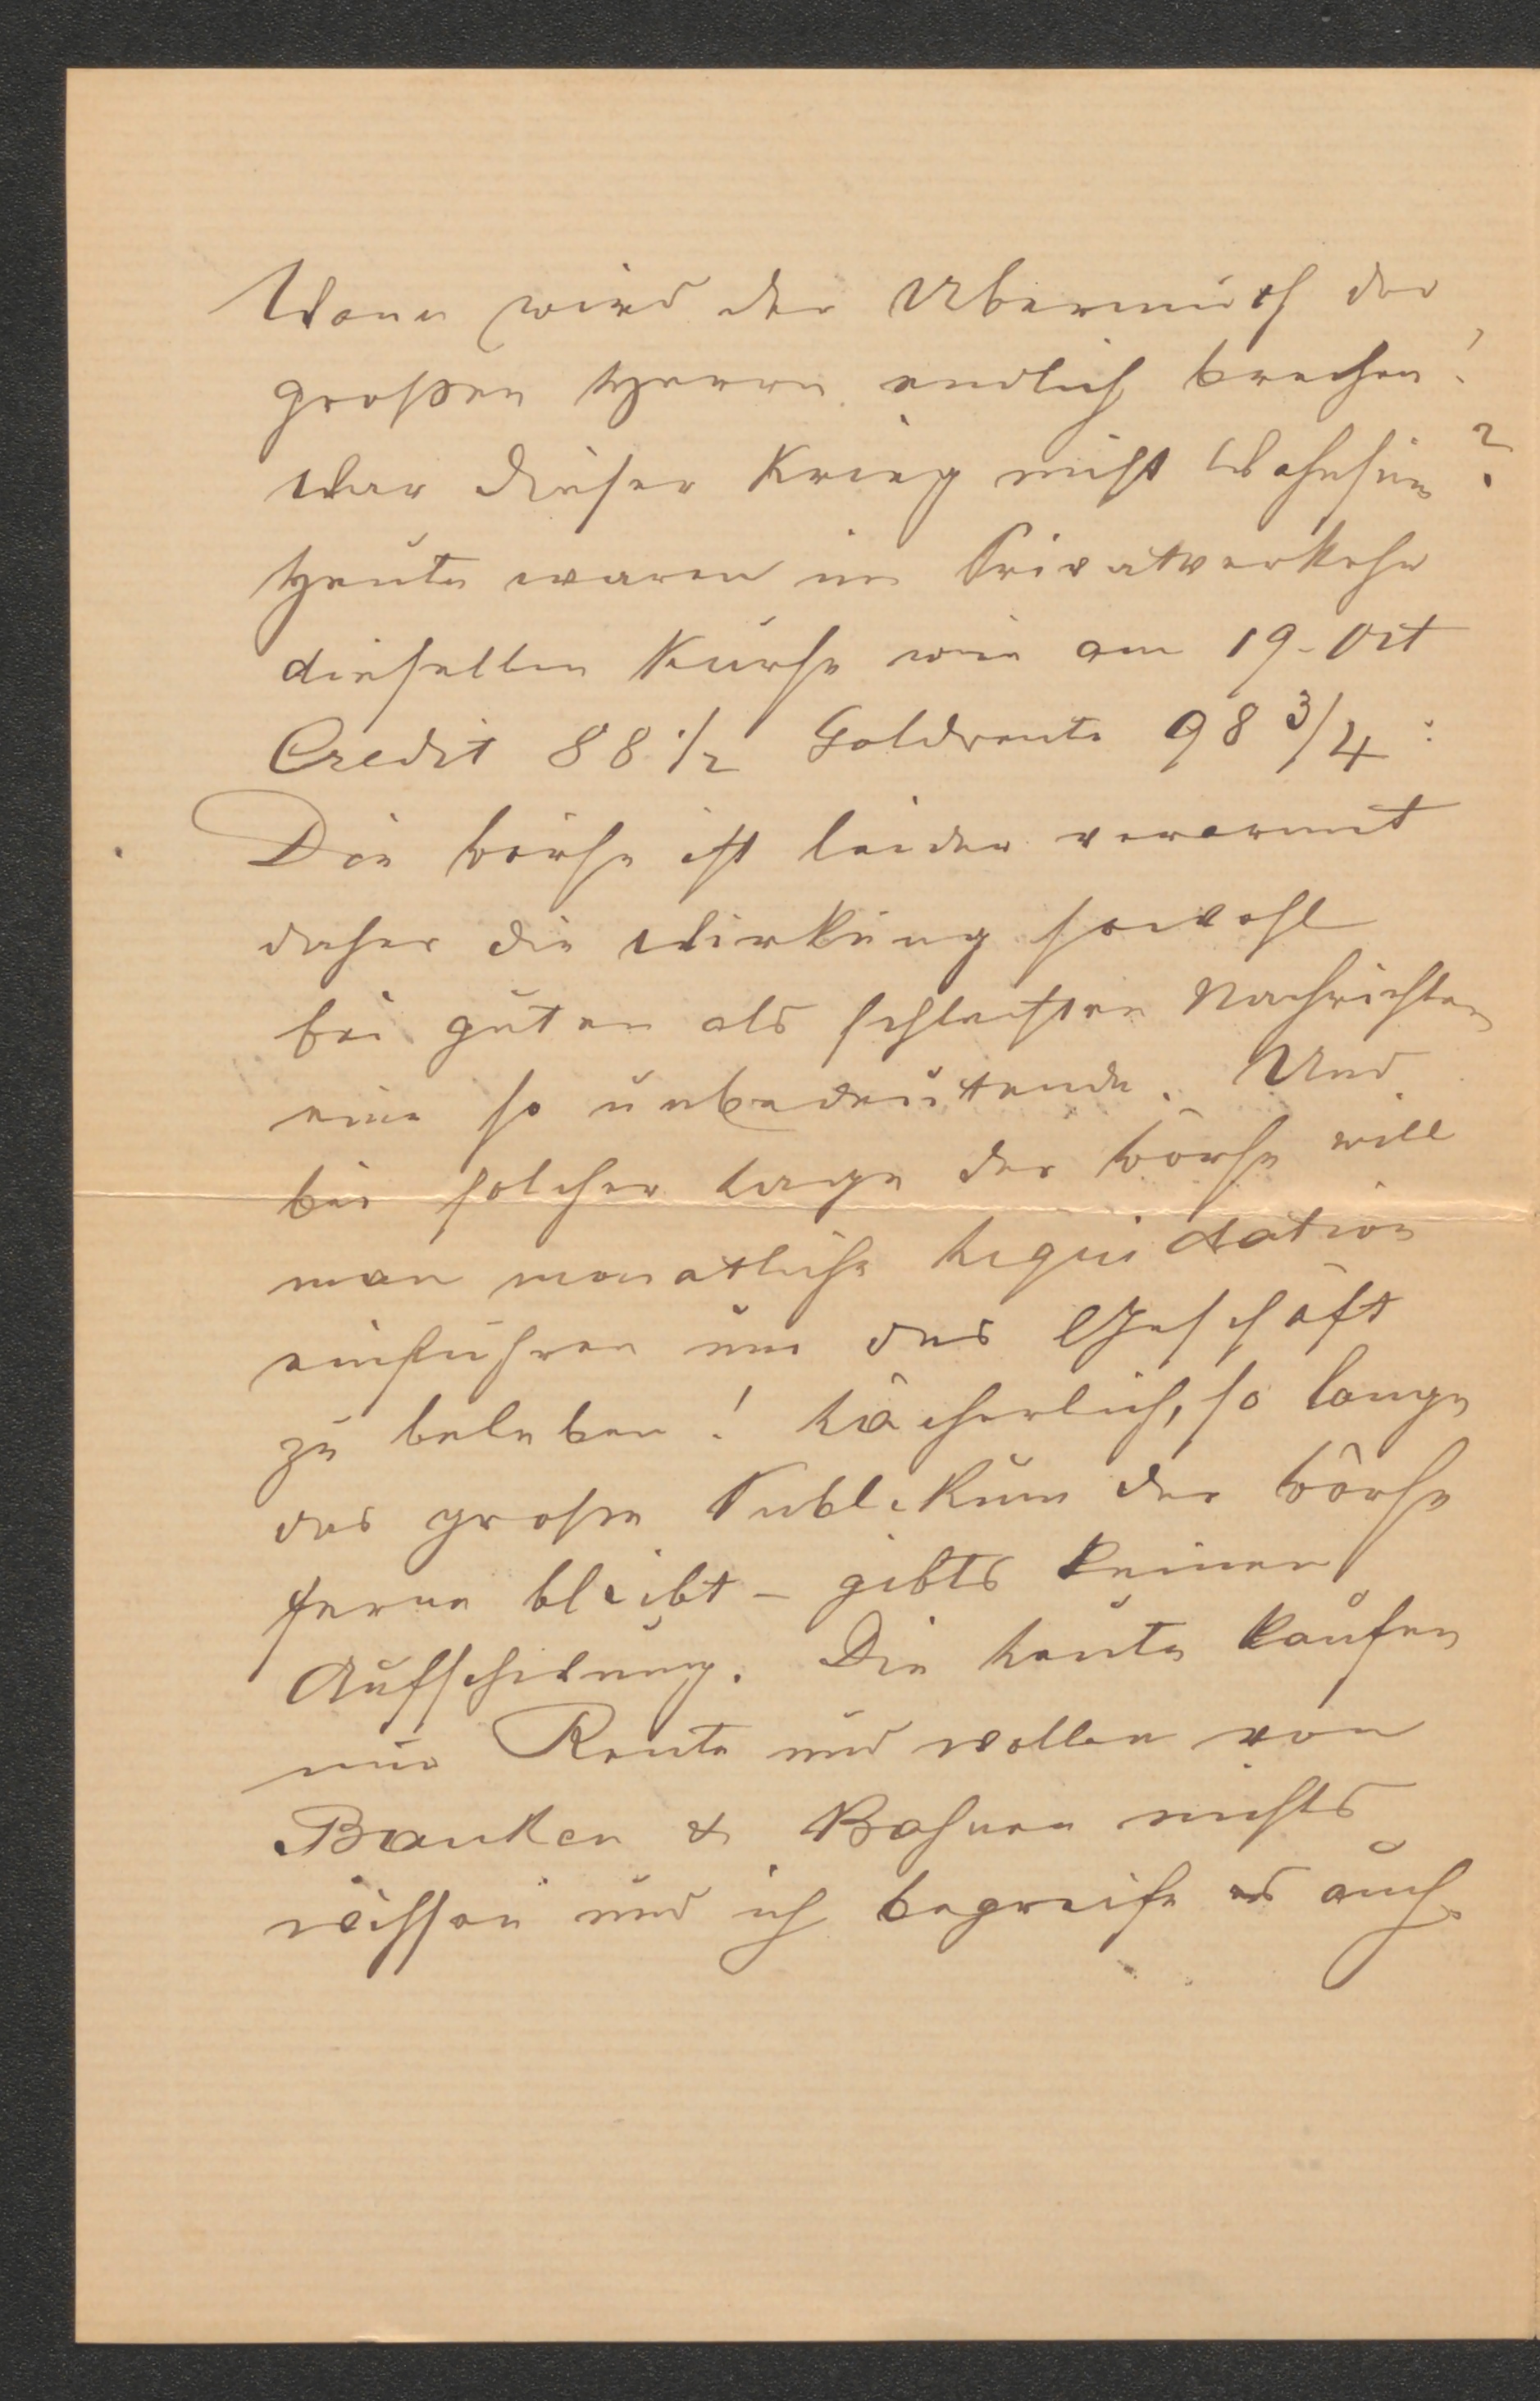 Wann wird der Übermuth der
großen Herrn endlich brechen!
War dieser Krieg nicht Wahnsinn?
Heute waren im Privatverkehr
dieselben Kurse wie am 19. Oct
Credit 88 1/2 Goldrente 98 3/4:
Die Börse ist leider verarmt
daher die Wirkung sowohl
bei guten als schlechten Nachrichten
eine so unbedeutende. Und
bei solcher Lage der Börse will
man monatliche Liquidation
einführen um das Geschäft
zu beleben! Lächerlich, so lange
das große Publikum der Börse
ferne bleibt – gibts keinen
Aufschwung. Die Leute kaufen
nur Rente und wollen von
Banken & Bahnen nichts
wissen und ich begreife es auch.